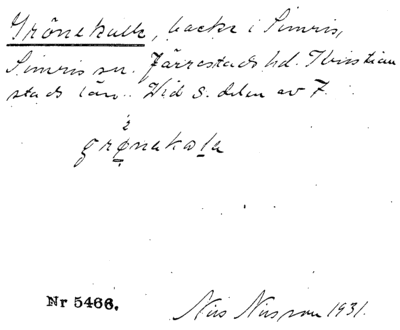 Grönekulle, backe i Simris,
Simris sn. Järrestads hd. Kristian
stads län. Vid S. delen av 7.
grønekola
Nr 5466.
Nils Nilsson 1931.